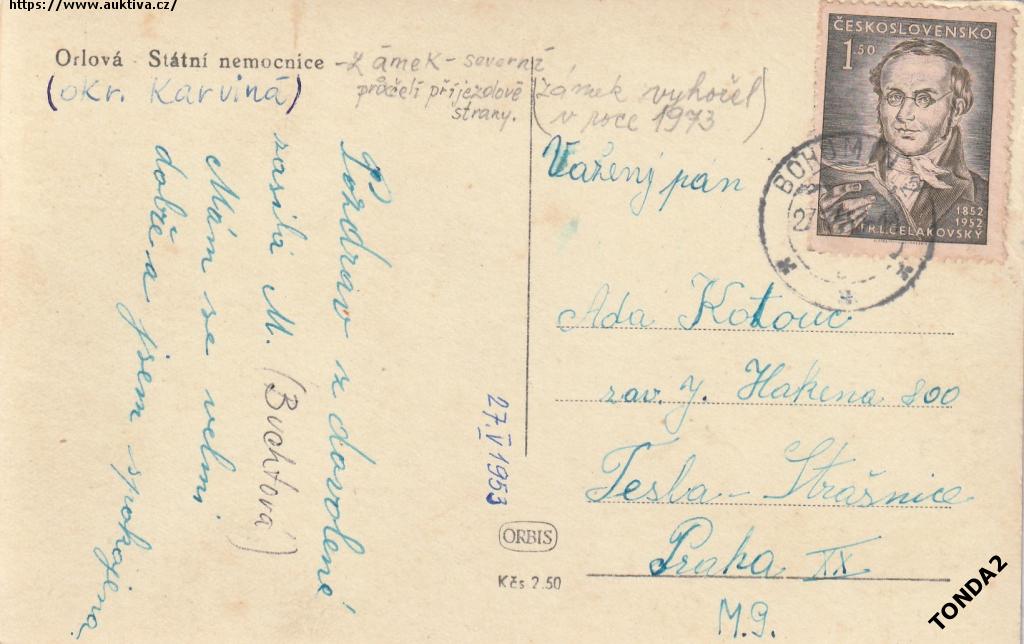 https://www.auktiva.cz/
Orlová - Státní nemocnice - zámek - severní
průčelí příjezdové
strany.
(okr. Karviná)
(zámek vyhořel
v roce 1973)
Pozdrav z dovolené
zasílá M. (Buchtová)
Mám se velmi
dobře a jsem spokojena.
27.V.1953
ORBIS
Kčs 2.50
ČESKOSLOVENSKO
1.50
1852
1952
FR.L.ČELAKOVSKÝ
BOHUMÍN
27
Vážený pán
Ada Kotouc
zav. J. Hakena 800
Tesla - Strašnice
Praha XX
M.g.
TONDA2